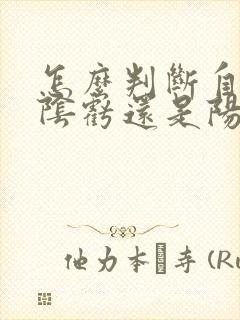 怎麼判斷自
陰虧還是陽
他力本 寺 (Ru